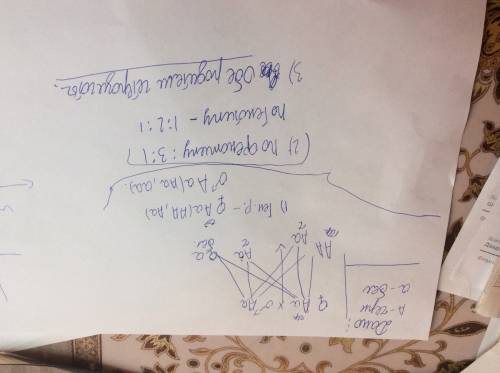 Дано:
А-черн
а-бел
♀ Аа × ♂ Аа
АА Аа Аа аа
ч ч бел
1) Ген. Р. - ♀ Аа (АА, Аа)
♂ Аа (Аа, аа).
2) По фенотипу: 3:1
по генотипу - 1:2:1
3) Обе родители гетерозигота.